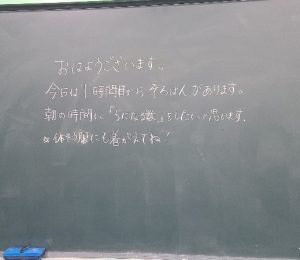 おはようございます。
今日は1時間目からそろばんがあります。
朝の時間に「うにた数」をしたいと思います。
体そう服にも着がえてね!